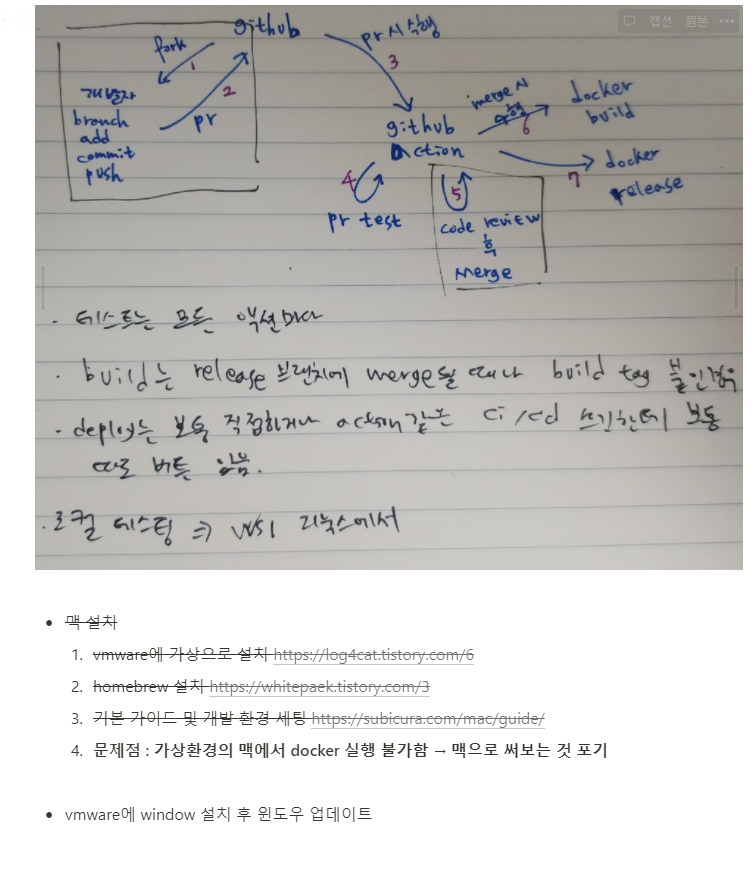 캡션 원본
github
pr시 실행
fork
1
3
2
개발자
branch
add
commit
push
pr
github
action
merge시
수행
6
docker
build
7
docker
release
4
pr test
5
code review
후
merge
· 테스트는 모든 액션마다
· build는 release 브랜치에 merge될 때나 build tag 붙인경우
· deploy는 보통 직접하거나 action같은 ci/cd 쓰긴한데 보통
따로 버튼 있음.
· 로컬 테스팅 ⇒ WSl 리눅스에서
• 맥 설치
1. vmware에 가상으로 설치 https://log4cat.tistory.com/6
2. homebrew 설치 https://whitepaek.tistory.com/3
3. 기본 가이드 및 개발 환경 세팅 https://subicura.com/mac/guide/
4. 문제점 : 가상환경의 맥에서 docker 실행 불가함 → 맥으로 써보는 것 포기
• vmware에 window 설치 후 윈도우 업데이트